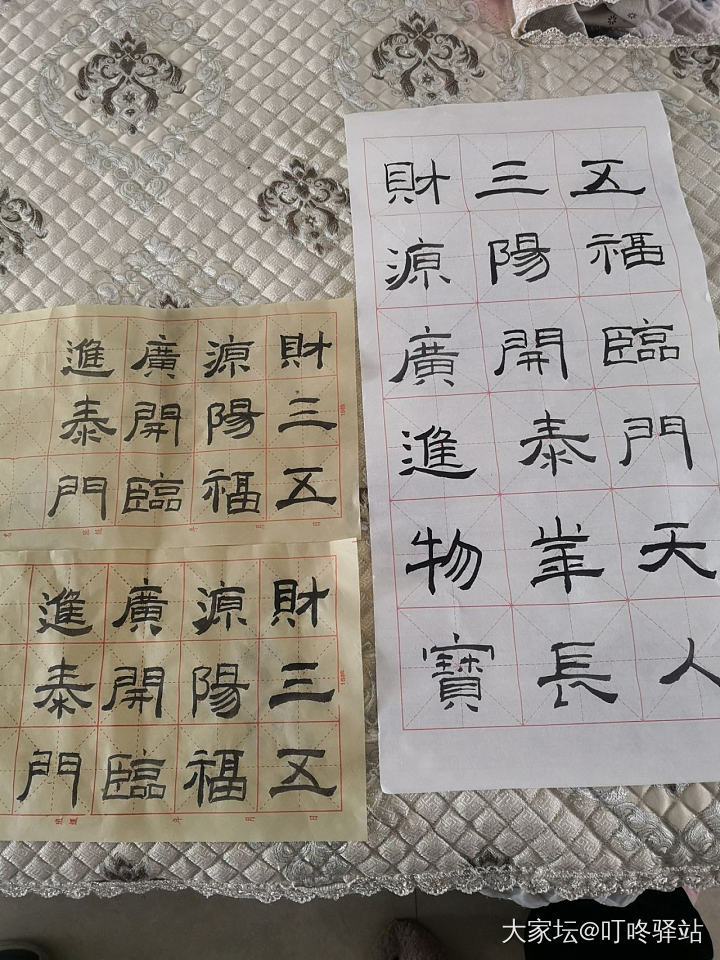 五福臨門天人
三陽開泰長
財源廣進物寶
財源廣進
三陽開泰
五福臨門
年 月 日
財源廣進
三陽開泰
五福臨門
年 月 日
大家坛@叮咚驿站